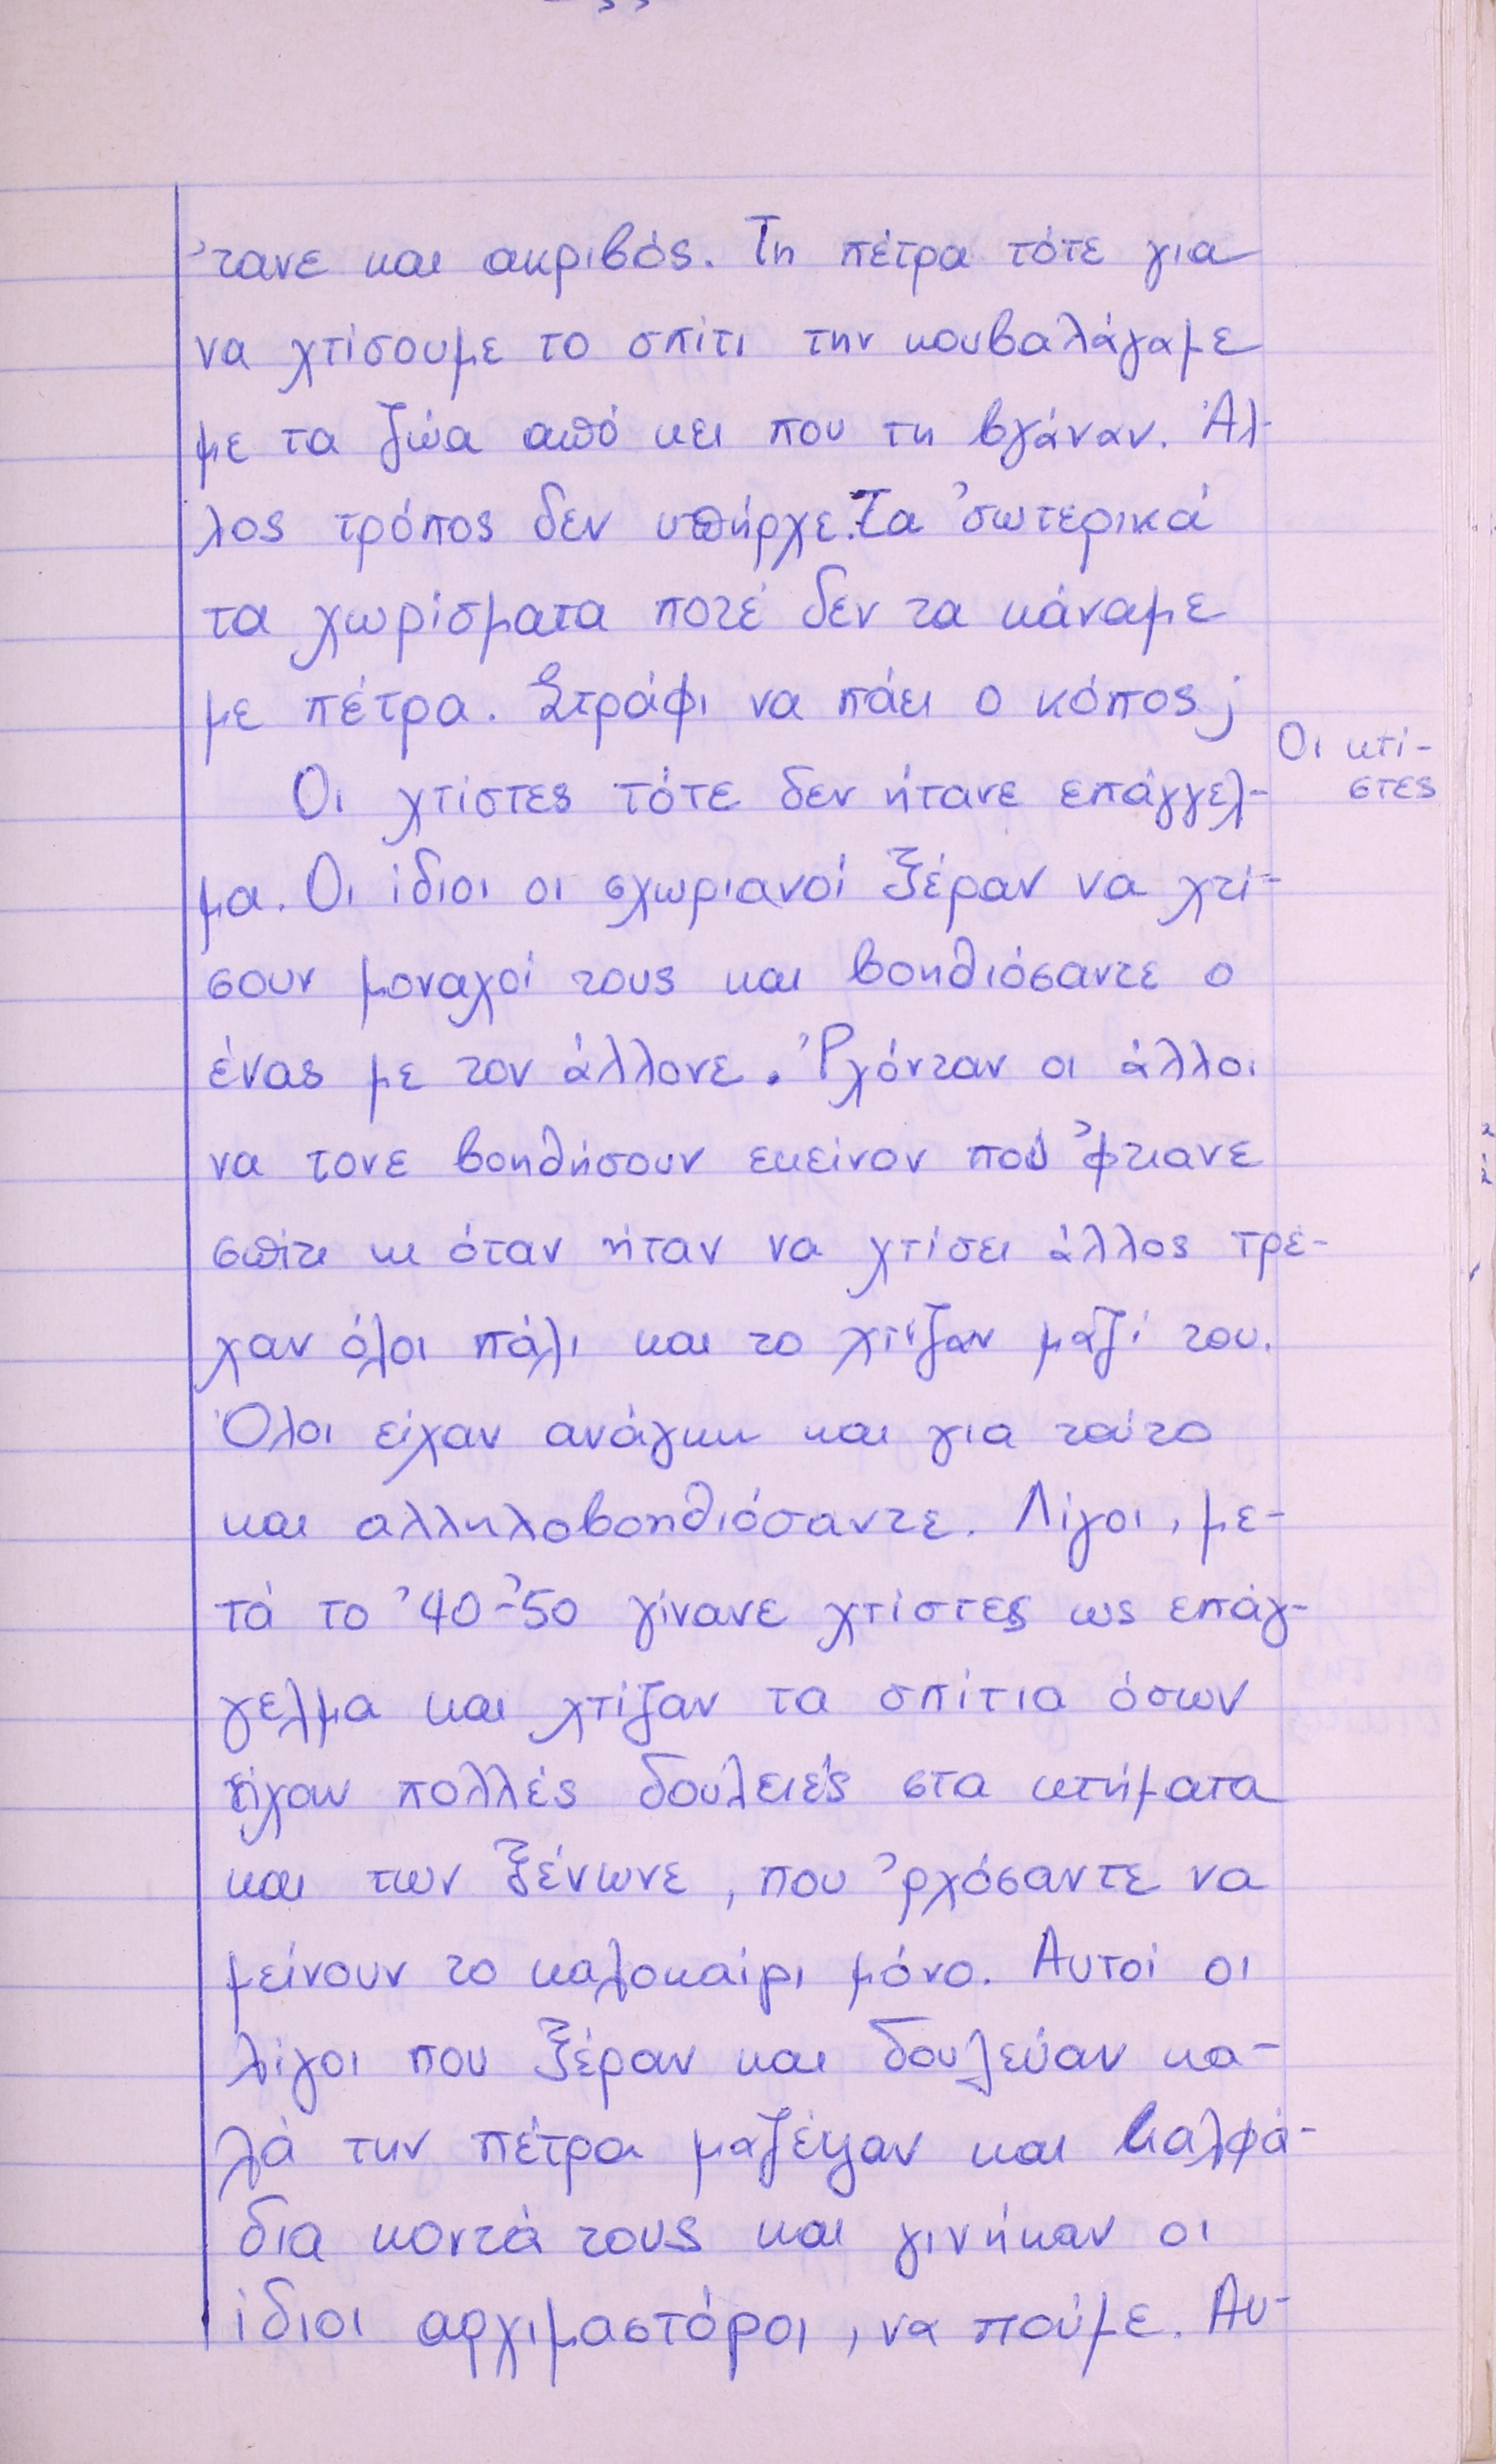 'τανε και ακριβός. Τη πέτρα τότε για
να χτίσουμε το σπίτι την κουβαλάγαμε
με τα ζώα από κει που τη βγάναν. Άλ-
λος τρόπος δεν υπήρχε. Τα 'σωτερικά
τα χωρίσματα ποτέ δεν τα κάναμε
με πέτρα. Στράφι να πάει ο κόπος;
Οι κτί-
στες
Οι χτίστες τότε δεν ήτανε επάγγελ-
μα. Οι ίδιοι οι σχωριανοί ξέραν να χτί-
σουν μοναχοί τους και βοηθιόσαντε ο
ένας με τον άλλονε. 'Ρχόνταν οι άλλοι
να τονε βοηθήσουν εκείνον πού 'φτιανε
σπίτι κι όταν ήταν να χτίσει άλλος τρέ-
χαν όλοι πάλι και το χτίζαν μαζί του.
Όλοι είχαν ανάγκη και για τούτο
και αλληλοβοηθιόσαντε. Λίγοι, με-
τά το '40-'50 γίνανε χτίστες ως επάγ-
γελμα και χτίζαν τα σπίτια όσων
είχαν πολλές δουλειές στα κτήματα
και των ξένωνε, που 'ρχόσαντε να
μείνουν το καλοκαίρι μόνο. Αυτοί οι
λίγοι που ξέραν και δουλεύαν κα-
λά την πέτρα μαζέψαν και καλφά-
δια κοντά τους και γινήκαν οι
ίδιοι αρχιμαστόροι, να πούμε. Αυ-